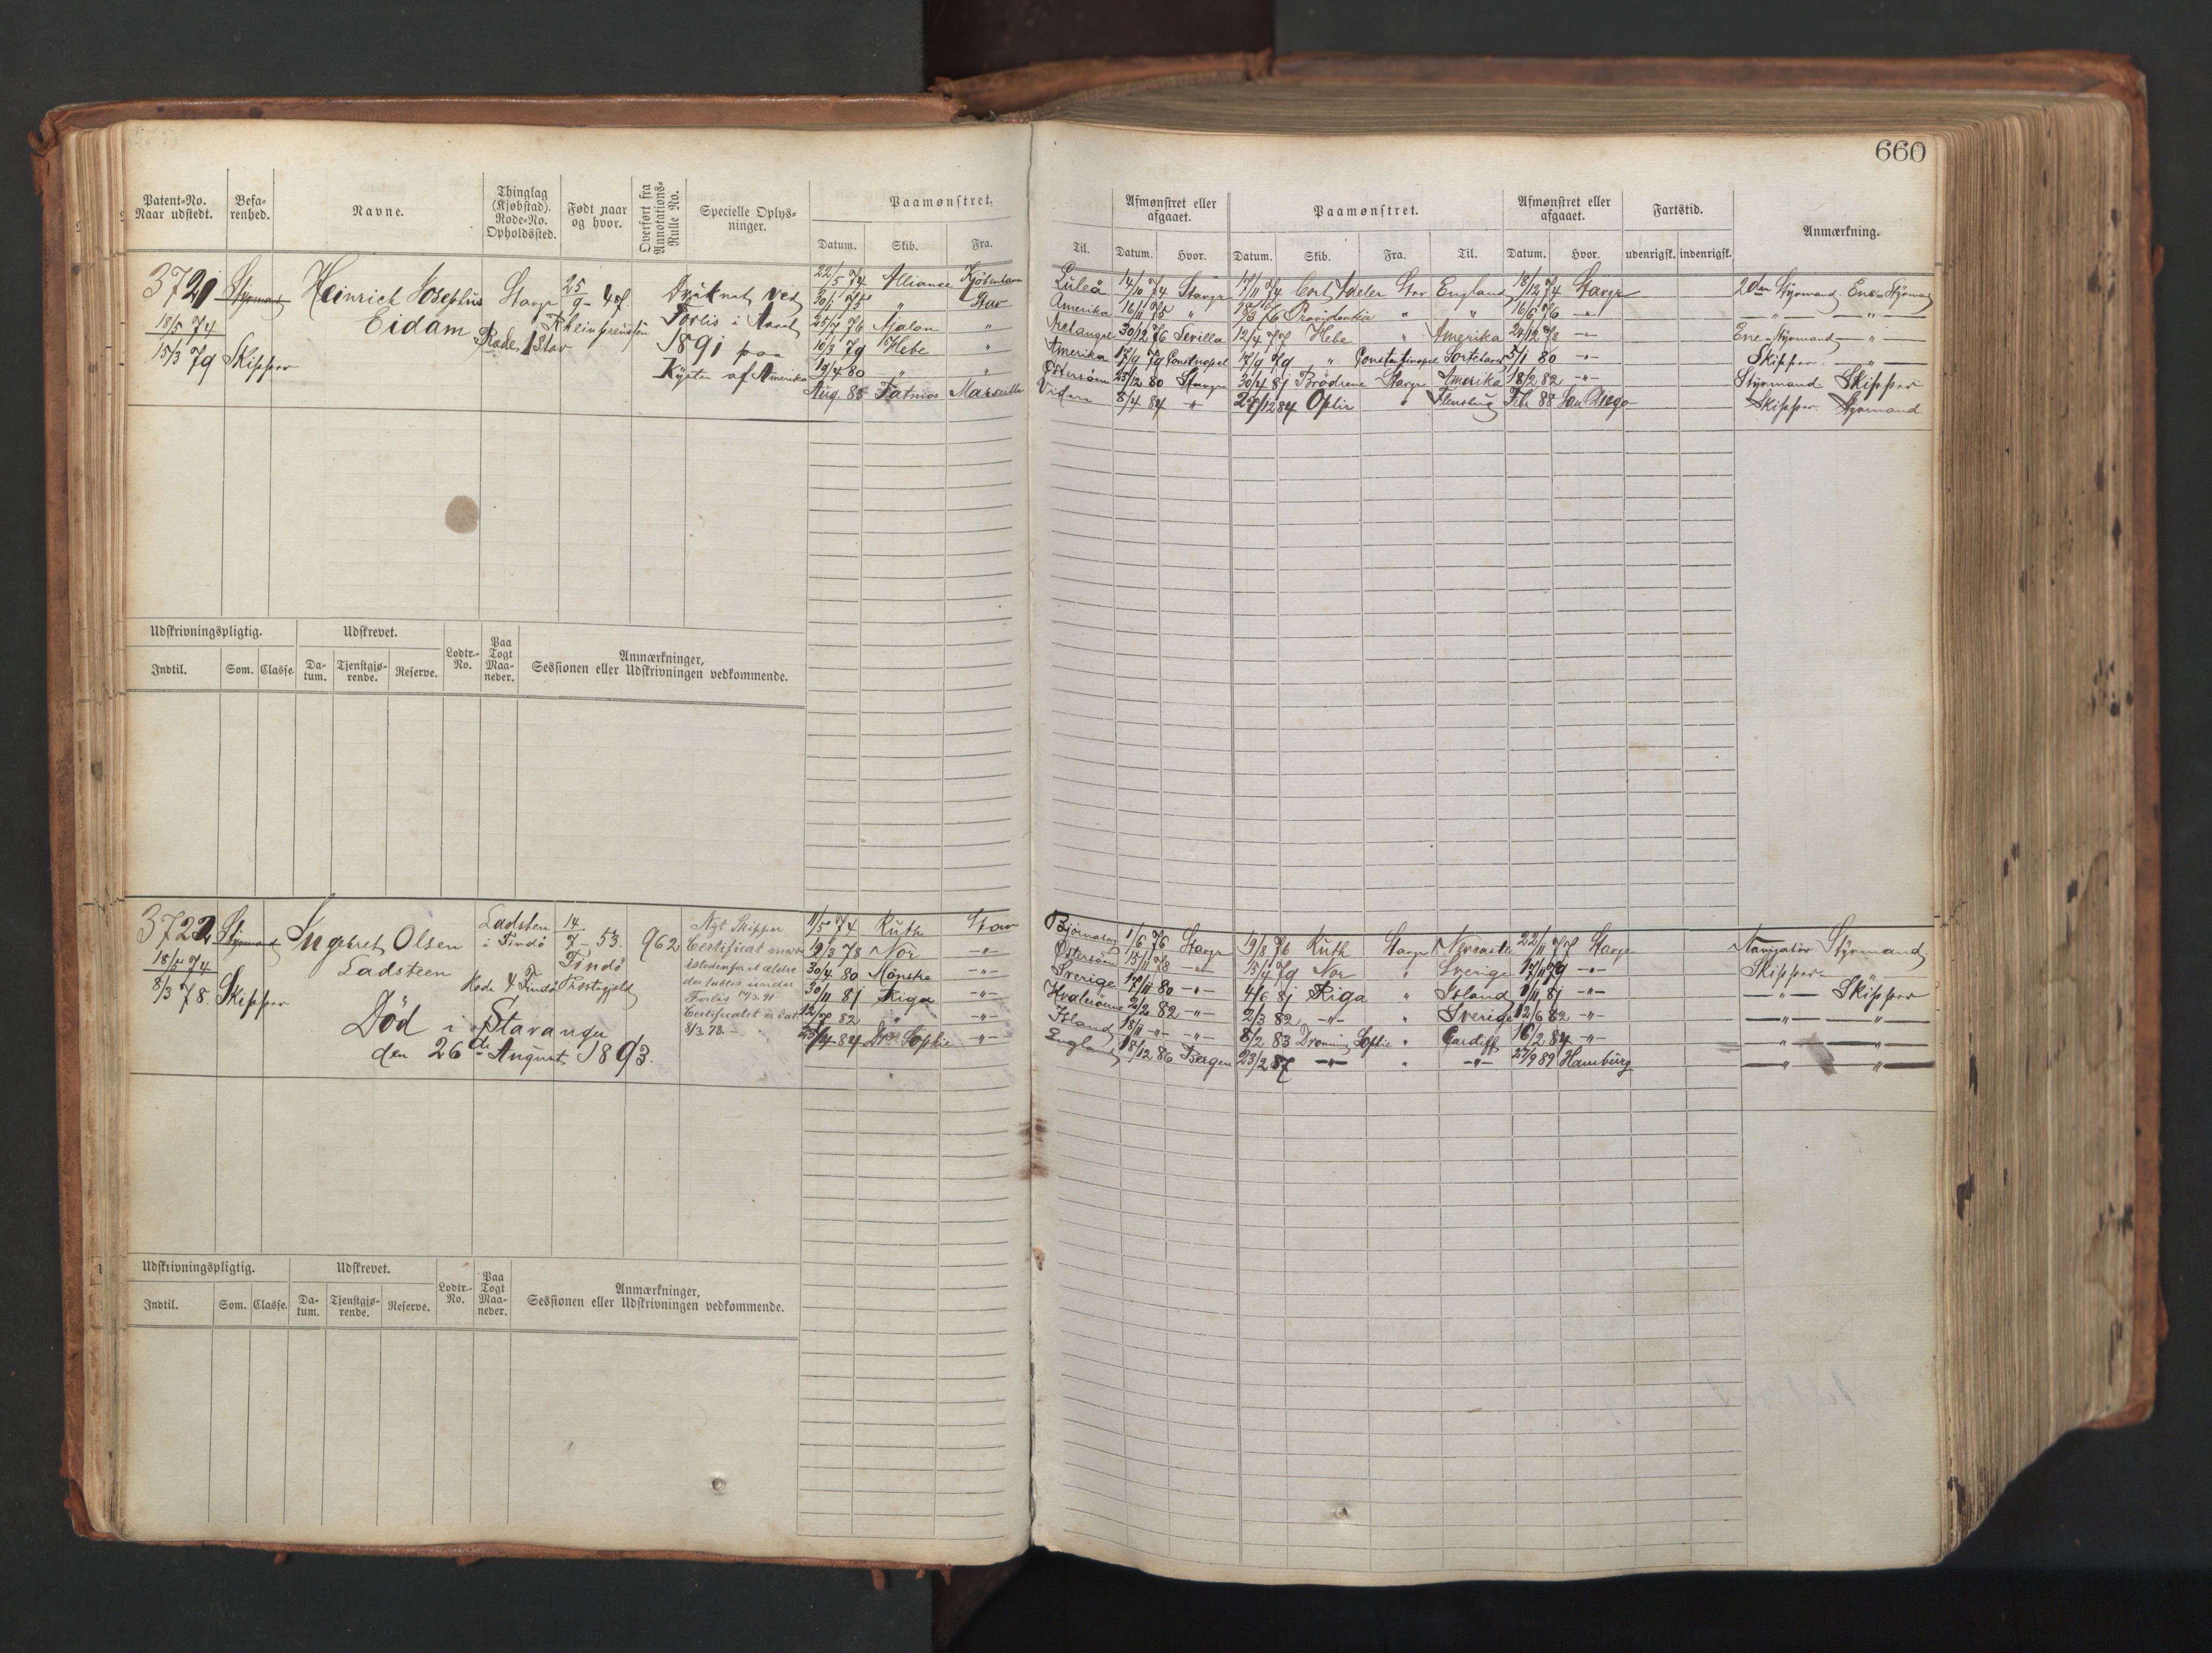 660
Patent-No. Naar udstedt.
Befarenhed.
Navne.
Thinglag (Kjøbstad). Rode-No. Opholdssted.
Født naar og hvor.
Overført fra Annotations-Rulle No.
Specielle Oplysninger.
Paamønstret.
Datum. Skib. Fra.
Til.
Afmønstret eller afgaaet.
Datum. Hvor.
Paamønstret.
Datum. Skib. Fra. Til.
Afmønstret eller afgaaet.
Datum. Hvor.
Fartstid.
udenrigsk. indenrigsk.
Anmærkning.
3721 Styrmand Heinrich Josephus Stavgr 25/9 - 47
18/5 74 Eidam Rode 1 Stav
15/3 79 Skipper
Druknet ved
Forlis i Aaret
1891 paa
Kysten af Amerika
22/5 74 Alliance Kjøbenhavn Luleå 14/10 74 Stavgr 17/11 74 Cort Adeler Stav England 18/12 74 Stavgr 2den Styrmand. Ene-Styrmand
" Stav Amerika 16/11 75 " Providentia " " 16/6 76 -"-
25/7 76 Ajalon " 30/12 76 Sevilla 12/4 77 Hebe " Amerika 24/12 78 -"- Ene-Styrmand -"-
10/3 79 Hebe " Amerika 17/9 79 Constnopel 17/9 79 " Constantinopel Sortehavet 5/1 80 -"- Skipper -"-
19/4 80 " " Østersøen 23/2 80 Stavgr 30/4 81 Brødrene Stavgr Amerika 18/2 82 -"- Styrmand Skipper
Aug. 85 Patmos Marseille 8/4 84 -"- 27/12 84 Ophir " Flensburg Febr 88 San Diego Skipper Styrmand
Udskrivningspligtig.
Udskrevet.
Lodtr.-No.
Paa Togt Maaneder.
Anmærkninger,
Sessionen eller Udskrivningen vedkommende.
Indtil. Som. Classe. Datum. Tjenstgjørende. Reserve.
3722 Styrmand Ingebret Olsen Ladsten 14/7 - 53. 962
18/5 74 Ladsteen i Findø Findø
8/3 78. Skipper Rode 4 Findø Præstegjeld
Død i Stavanger
den 26de August 1893.
Nyt Skipper
Certificat
istedenfor et ældre
der tabtes under
Forlis
Certificatet er dat.
8/3.78. -
11/5 74 Ruth Stav 1/6 76 Stavgr 19/8 76 Ruth Stavgr Newcastle 22/11 77 Stavgr Navigatør Styrmand
19/3 78 Nor -"- Østersøen 15/11 78 -"- 15/4 79 Nor " Sverige 17/11 79 -"- Skipper
30/4 80 Mønstre -"- Sverige 12/11 80 -"- 4/6 81 Riga " Island 1/11 81 -"- -"- Skipper
30/11 81 Riga -"- 2/2 82 -"- 2/3 82 -"- " Sverige 12/6 82 -"- -"- -"-
82 " -"- Island 18/11 -"- -"- 8/2 83 Dronning Sophie " Cardiff 16/2 84 -"- -"- -"-
84 Dr. Sophie -"- England 18/12 86 Bergen 23/2 87 -"- " -"- 27/9 89 Hamburg -"- -"-
Udskrivningspligtig.
Udskrevet.
Lodtr.-No.
Paa Togt Maaneder.
Anmærkninger,
Sessionen eller Udskrivningen vedkommende.
Indtil. Som. Classe. Datum. Tjenstgjørende. Reserve.